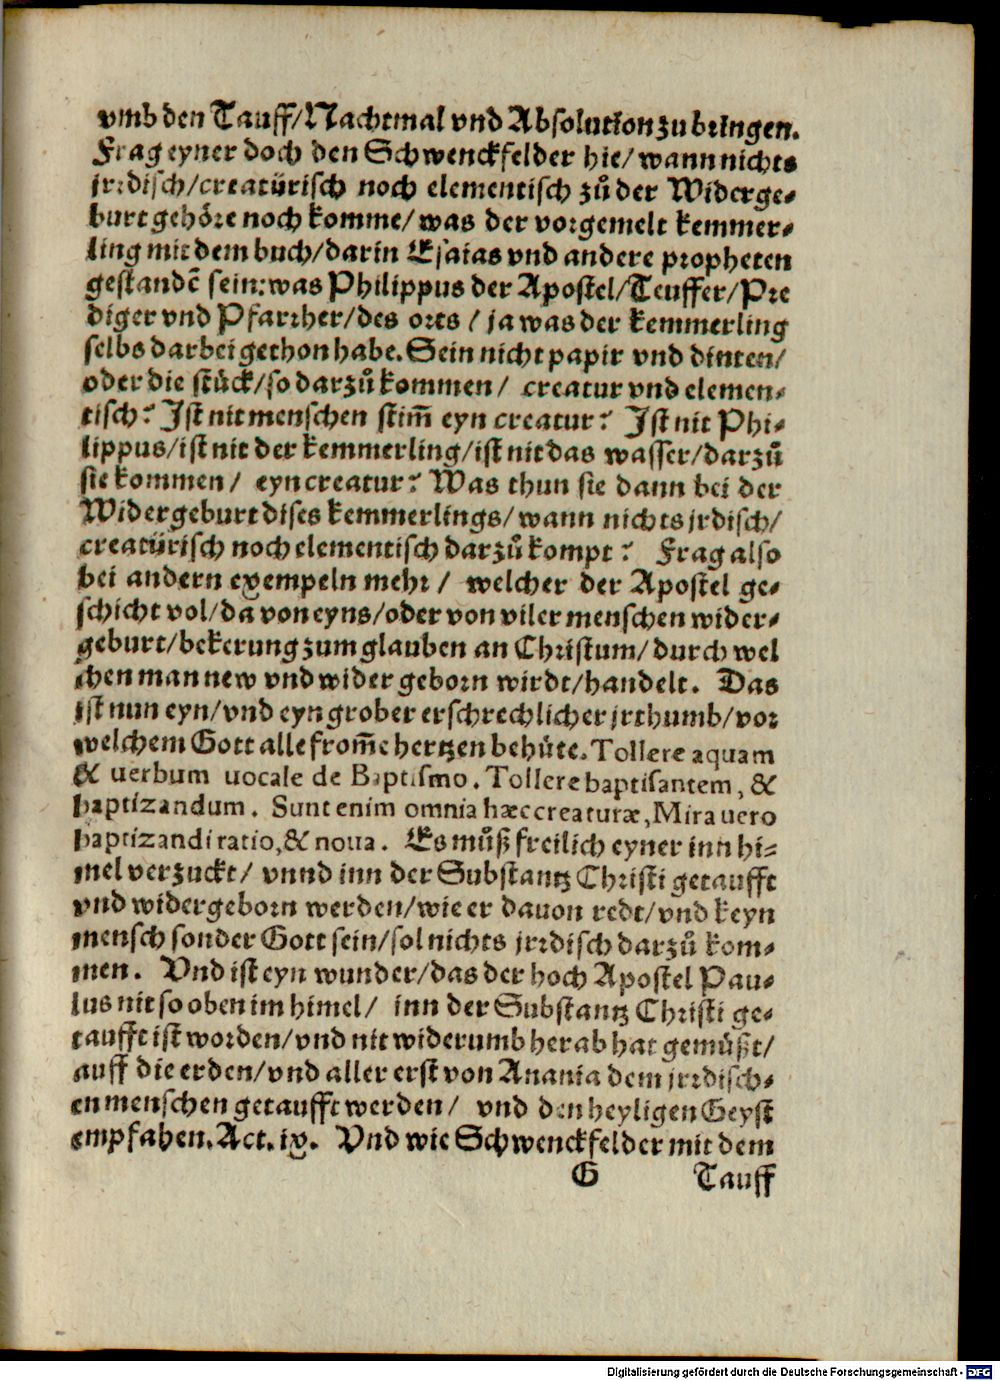 vmb den Tauff/Nachtmal vnd Absolution zu bringen.
Frag eyner doch den Schwenckfelder hie/wann nichts
jrꝛdisch/creatürisch noch elementisch zů der Widerge⸗
burt gehöre noch komme/was der vorgemelt kemmer⸗
ling mit dem buch/darin Esaias vnd andere propheten
gestandē sein:was Philippus der Apostel/Teuffer/Pre
diger vnd Pfarrher/des orts / ja was der kemmerling
selbs darbei gethon habe. Sein nicht papir vnd dinten/
oder die stück/so darzů kommen/ creatur vnd elemen⸗
tisch? Ist nit menschen stim̃ eyn creatur? Ist nit Phi⸗
lippus/ist nit der kemmerling/ist nit das wasser/darzů
sie kommen/ eyn creatur? Was thun sie dann bei der
Widergeburt dises kemmerlings/wann nichts jrdisch/
creatürisch noch elementisch darzů kompt? Frag also
bei andern exempeln mehr/ welcher der Apostel ge⸗
schicht vol/da von eyns/oder von viler menschen wider⸗
geburt/bekerung zum glauben an Christum/durch wel
chen man new vnd wider geborn wirdt/handelt. Das
ist nun eyn/vnd eyn grober erschrechlicher jrthumb/vor
welchem Gott alle from̃e hertzen behüte. Tollere aquam
& uerbum uocale de Baptismo. Tollere baptisantem, &
baptizandum. Sunt enim omnia hæc creaturæ, Mira uero
baptizandi ratio, & noua. Es můß freilich eyner inn hi⸗
mel verzuckt/ vnnd inn der Substantz Christi getaufft
vnd widergeborn werden/wie er dauon redt/vnd keyn
mensch sonder Gott sein/sol nichts jrꝛdisch darzů kom⸗
men. Vnd ist eyn wunder/das der hoch Apostel Pau⸗
lus nit so oben im himel/ inn der Substantz Christi ge⸗
taufft ist worden/vnd nit widerumb herab hat gemüßt/
auff die erden/vnd aller erst von Anania dem jrꝛdisch⸗
en menschen getaufft werden/ vnd den heyligen Geyst
empfahen. Act. ix. Vnd wie Schwenckfelder mit dem
G Tauff
Digitalisierung gefördert durch die Deutsche Forschungsgemeinschaft - DFG